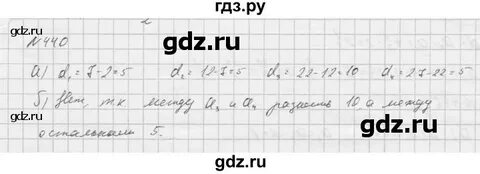 гдз.ру
№440
gdz.ru
а) d₁ = 7-2=5 d₂ = 12-7=5 d₃ = 22-12=10 d₄ = 27-22=5
gdz.ru gdz.ru
б) Нет, т.к между a₃ и a₄ разность 10, а между
остальными 5.
gdz.ru gdz.ru